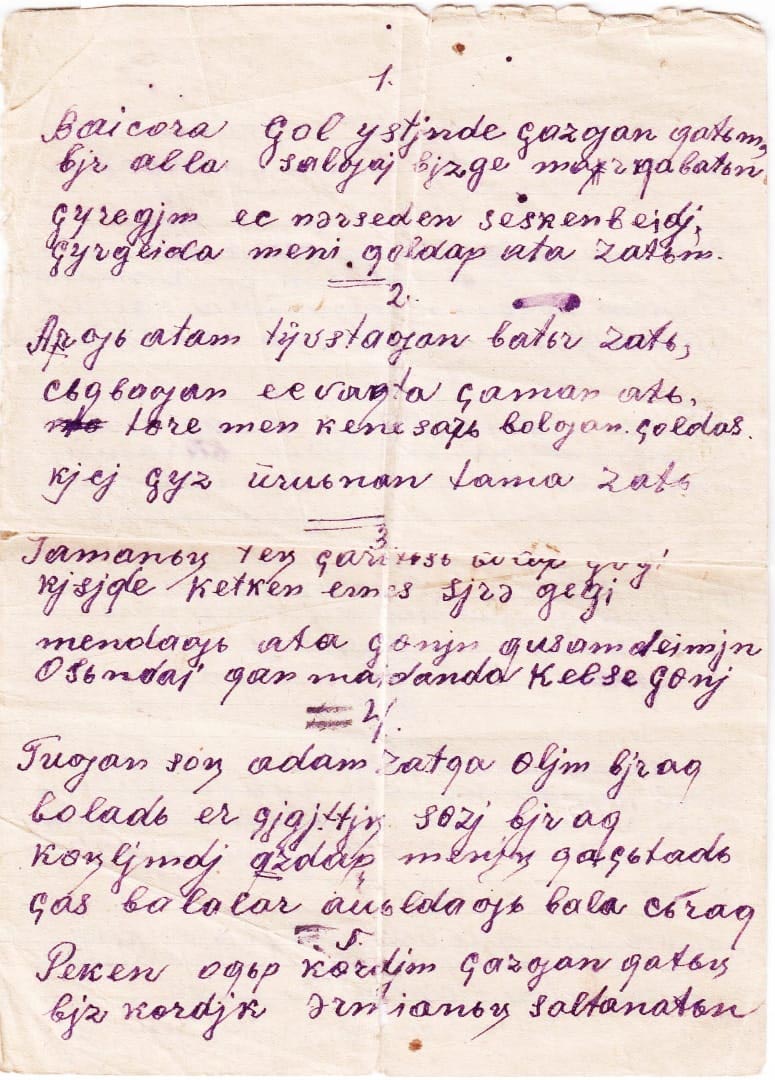 1.
Baicora Çol ystjnde çazƣan qatьm,
bjr alla salƣaj bjzge
çyregjm ec nərseden seskenbeidj,
çyrgeida meni qoldap ata zatьm.
2.
Arƣь atam tüvstaƣan batьr zatь,
cьgbaƣan ecvaqta çaman atь.
tөre men kenesarь bolƣan çoldas.
kjcj çyz üruьnan tama zatь
3
Tamanьꞑ teꞑ
kjsjge ketken emes sjrə gegi
mendaƣь ata çonjn qusamdeimjn
Osьndaj qan majdanda Kelse çөnj
4.
Tuƣan soꞑ adam zatqa өljm bjraq
boladь er qjgjttjꞑ sөzj bjraq
Kөꞑljmdj qozdap menjꞑ qaçьtadь
ças balalar auьldaƣь bala cьraq
5.
Peken oqьp kөrdjm çazƣan qatьꞑ
bjz kөrdjk Ərmianьꞑ saltanatьn